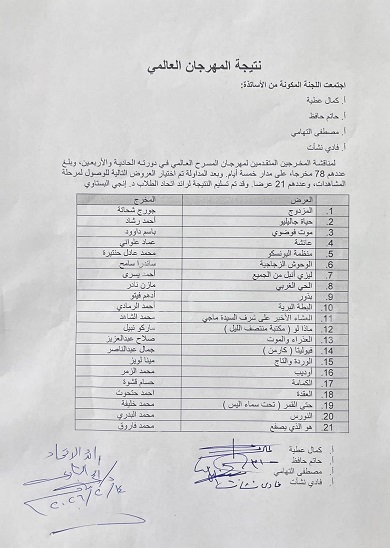 نتيجة المهرجان العالمي
اجتمعت اللجنة المكونة من الأساتذة:
أ. كمال عطية
أ. حاتم حافظ
أ. مصطفى التهامي
أ. فادي نشأت
لمناقشة المخرجين المتقدمين لمهرجان المسرح العالمي في دورته الحادية والأربعين، وبلغ
عددهم 78 مخرجا، على مدار خمسة أيام. وبعد المداولة تم اختيار العروض التالية للوصول لمرحلة
المشاهدات، وعددهم 21 عرضا. وقد تم تسليم النتيجة لرائد اتحاد الطلاب د. إنجي البستاوي
العرض المخرج
1. المزدوج جورج شحاتة
2. حياة جاليليو أحمد رشاد
3. موت فوضوي باسم داوود
4. عائشة عماد علواني
5. منظمة اليونسكو محمد عادل حنتيرة
6. الوحوش الزجاجية ساندرا سامح
7. ليزي أنبل من الجميع أحمد يسري
8. الحي الغربي مازن نادر
9. بذور أدهم فيلو
10. البطة البرية أحمد الرمادي
11. العشاء الأخير على شرف السيدة ماجي محمد الشاهد
12. ماذا لو ( مكتبة منتصف الليل ) ماركو نبيل
13. العذراء والموت صلاح عبدالعزيز
14. فيوليتا ( كارمن ) جمال عبدالناصر
15. الوردة والتاج مينا لويز
16. أوديب محمد الزمر
17. الكمامة حسام قشوة
18. العقدة أحمد حتحوت
19. حتى القمر ( تحت سماء أليس ) محمد خليفة
20. النورس محمد البدري
21. هو الذي يصفع محمد فاروق
أ. كمال عطية
أ. حاتم حافظ
أ. مصطفى التهامي
أ. فادي نشأت فادي نشأت
رائد الاتحاد